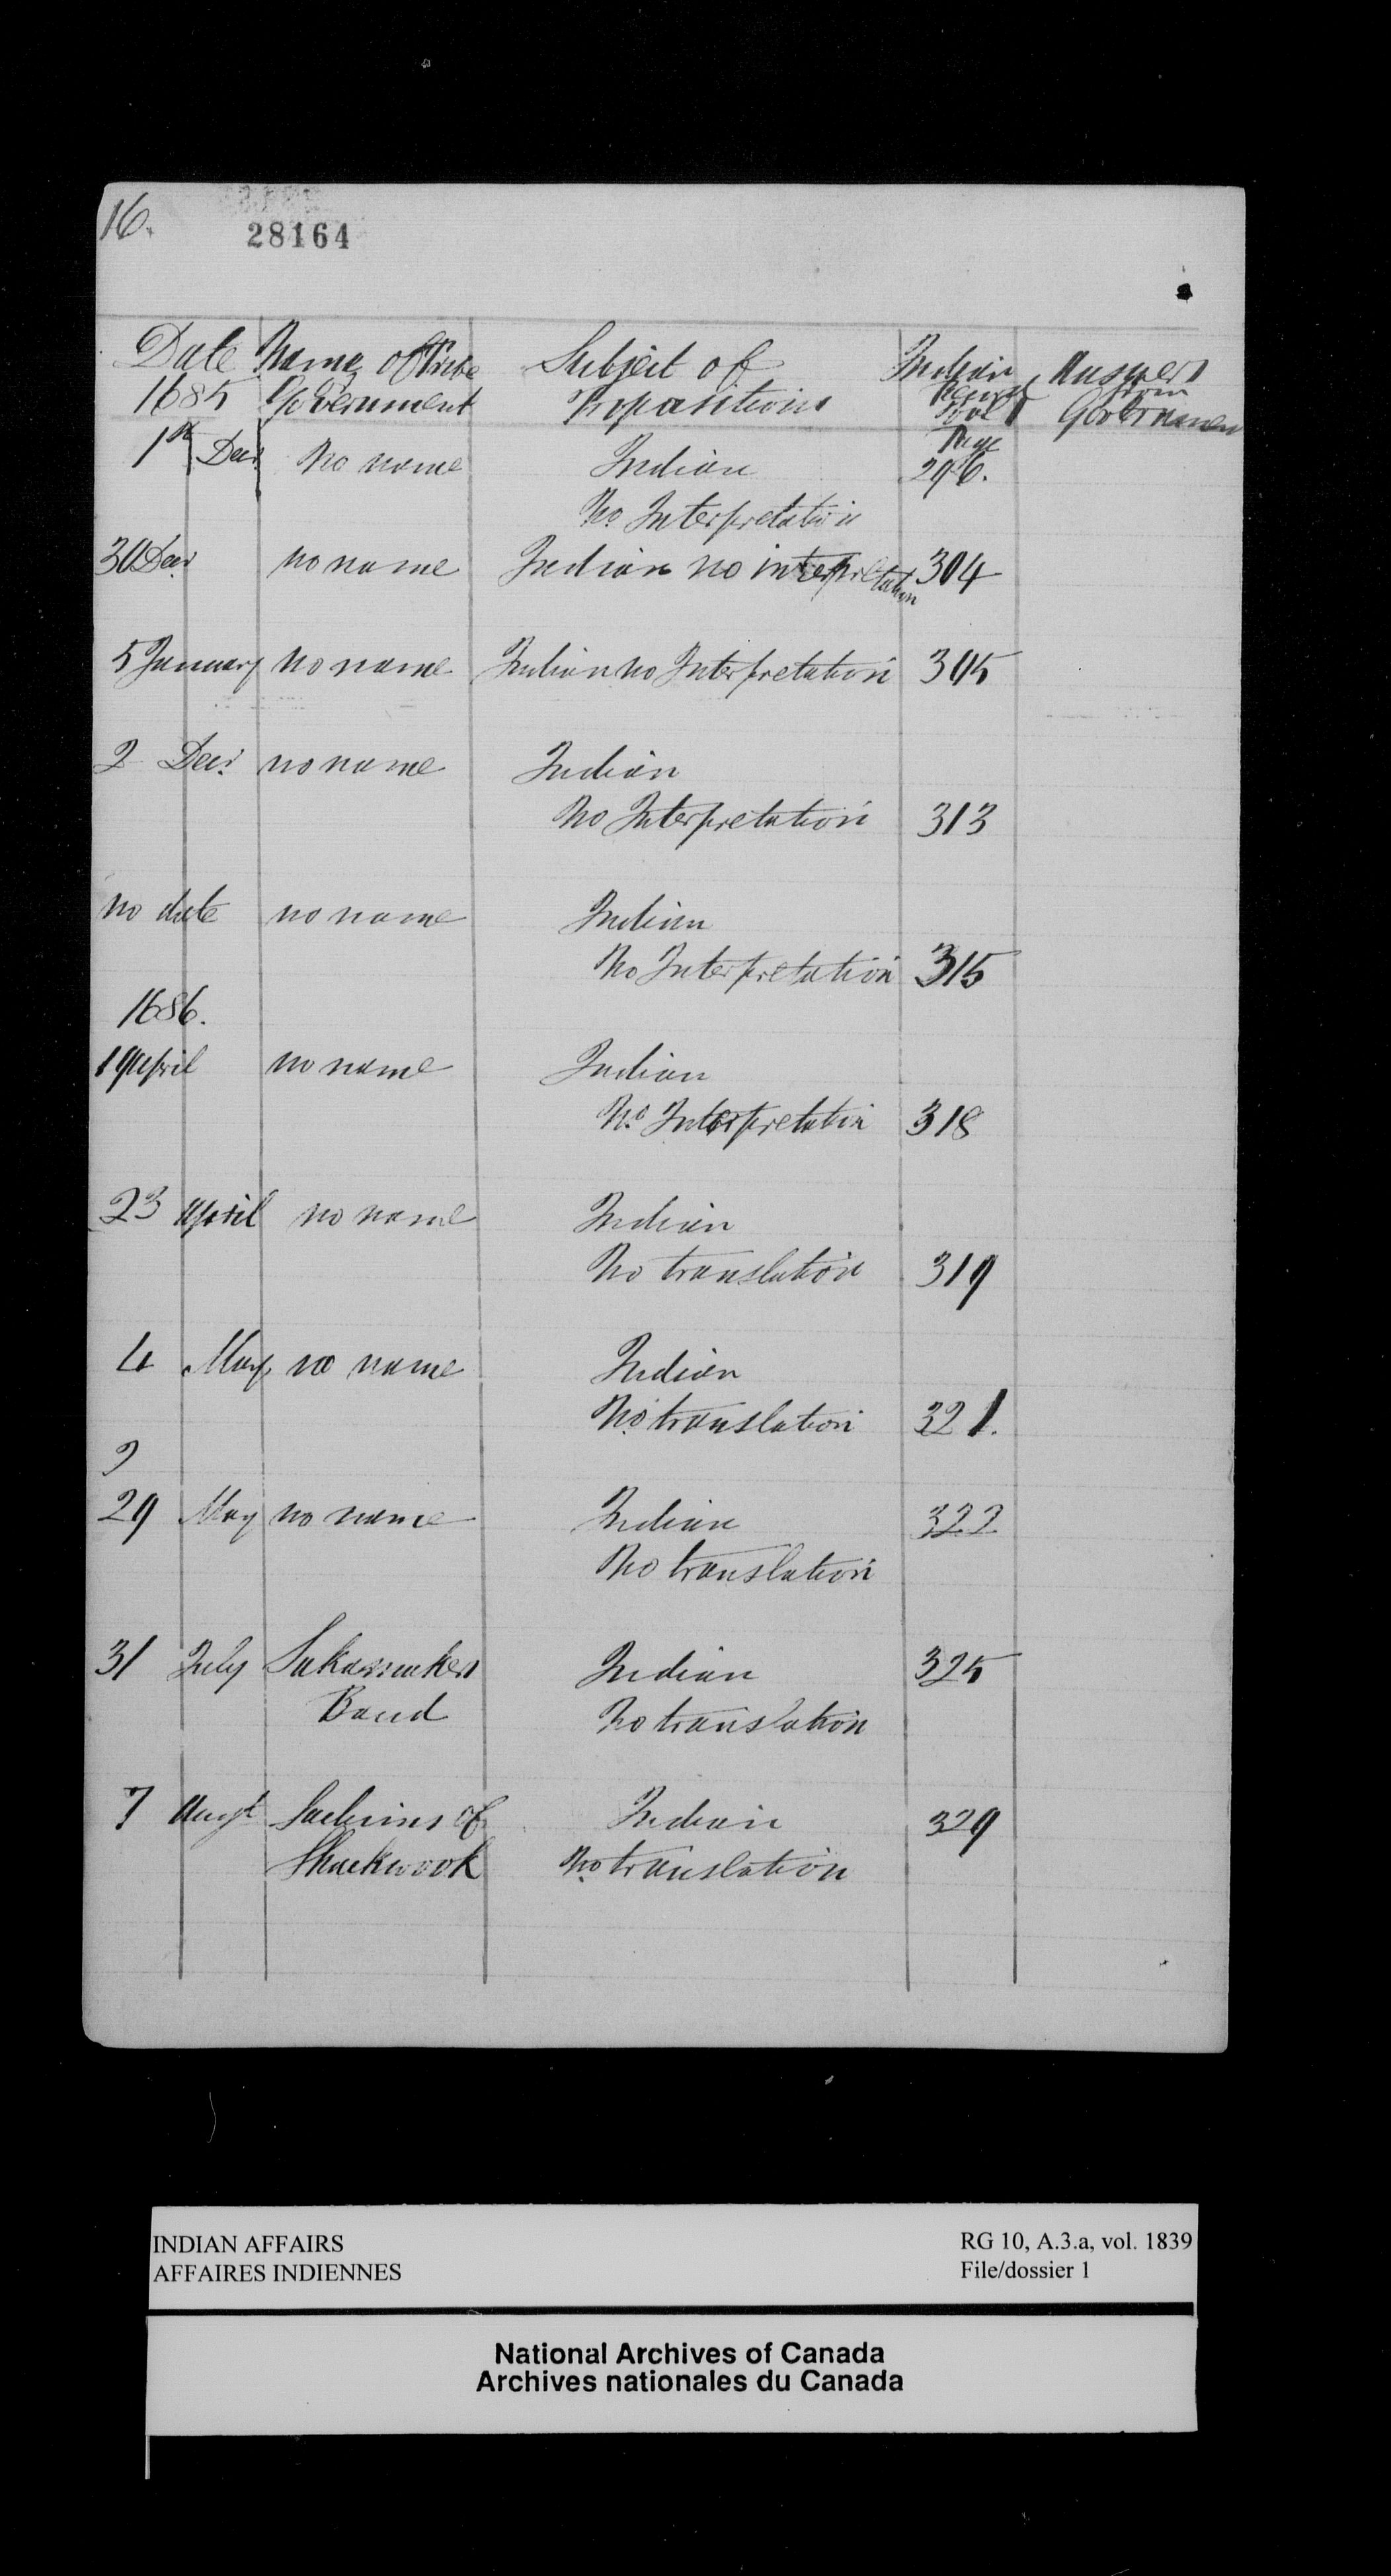 16.
28164
Date Name of Tribe Subject of Indian Answers
1685 Government Propositions Records from
Vol 1 Government
Page
1st Decr No name Indian 296.
No Interpretation
30 Decr no name Indian no interpretation 304
5 January no name Indian no Interpretation 305
2 Decr. no name Indian
No Interpretation 313
no date no name Indian
No Interpretation 315
1686.
19 April no name Indian
No Interpretation 318
23 April no name Indian
No translation 319
4 May no name Indian
No translation 321.
2
29 May no name Indian 322
No translation
31 July Indian 325
Band No translation
7 Augt Sachims of Indian 329
Shackwook No translation
INDIAN AFFAIRS RG 10, A.3.a, vol. 1839
AFFAIRES INDIENNES File/dossier 1
National Archives of Canada
Archives nationales du Canada